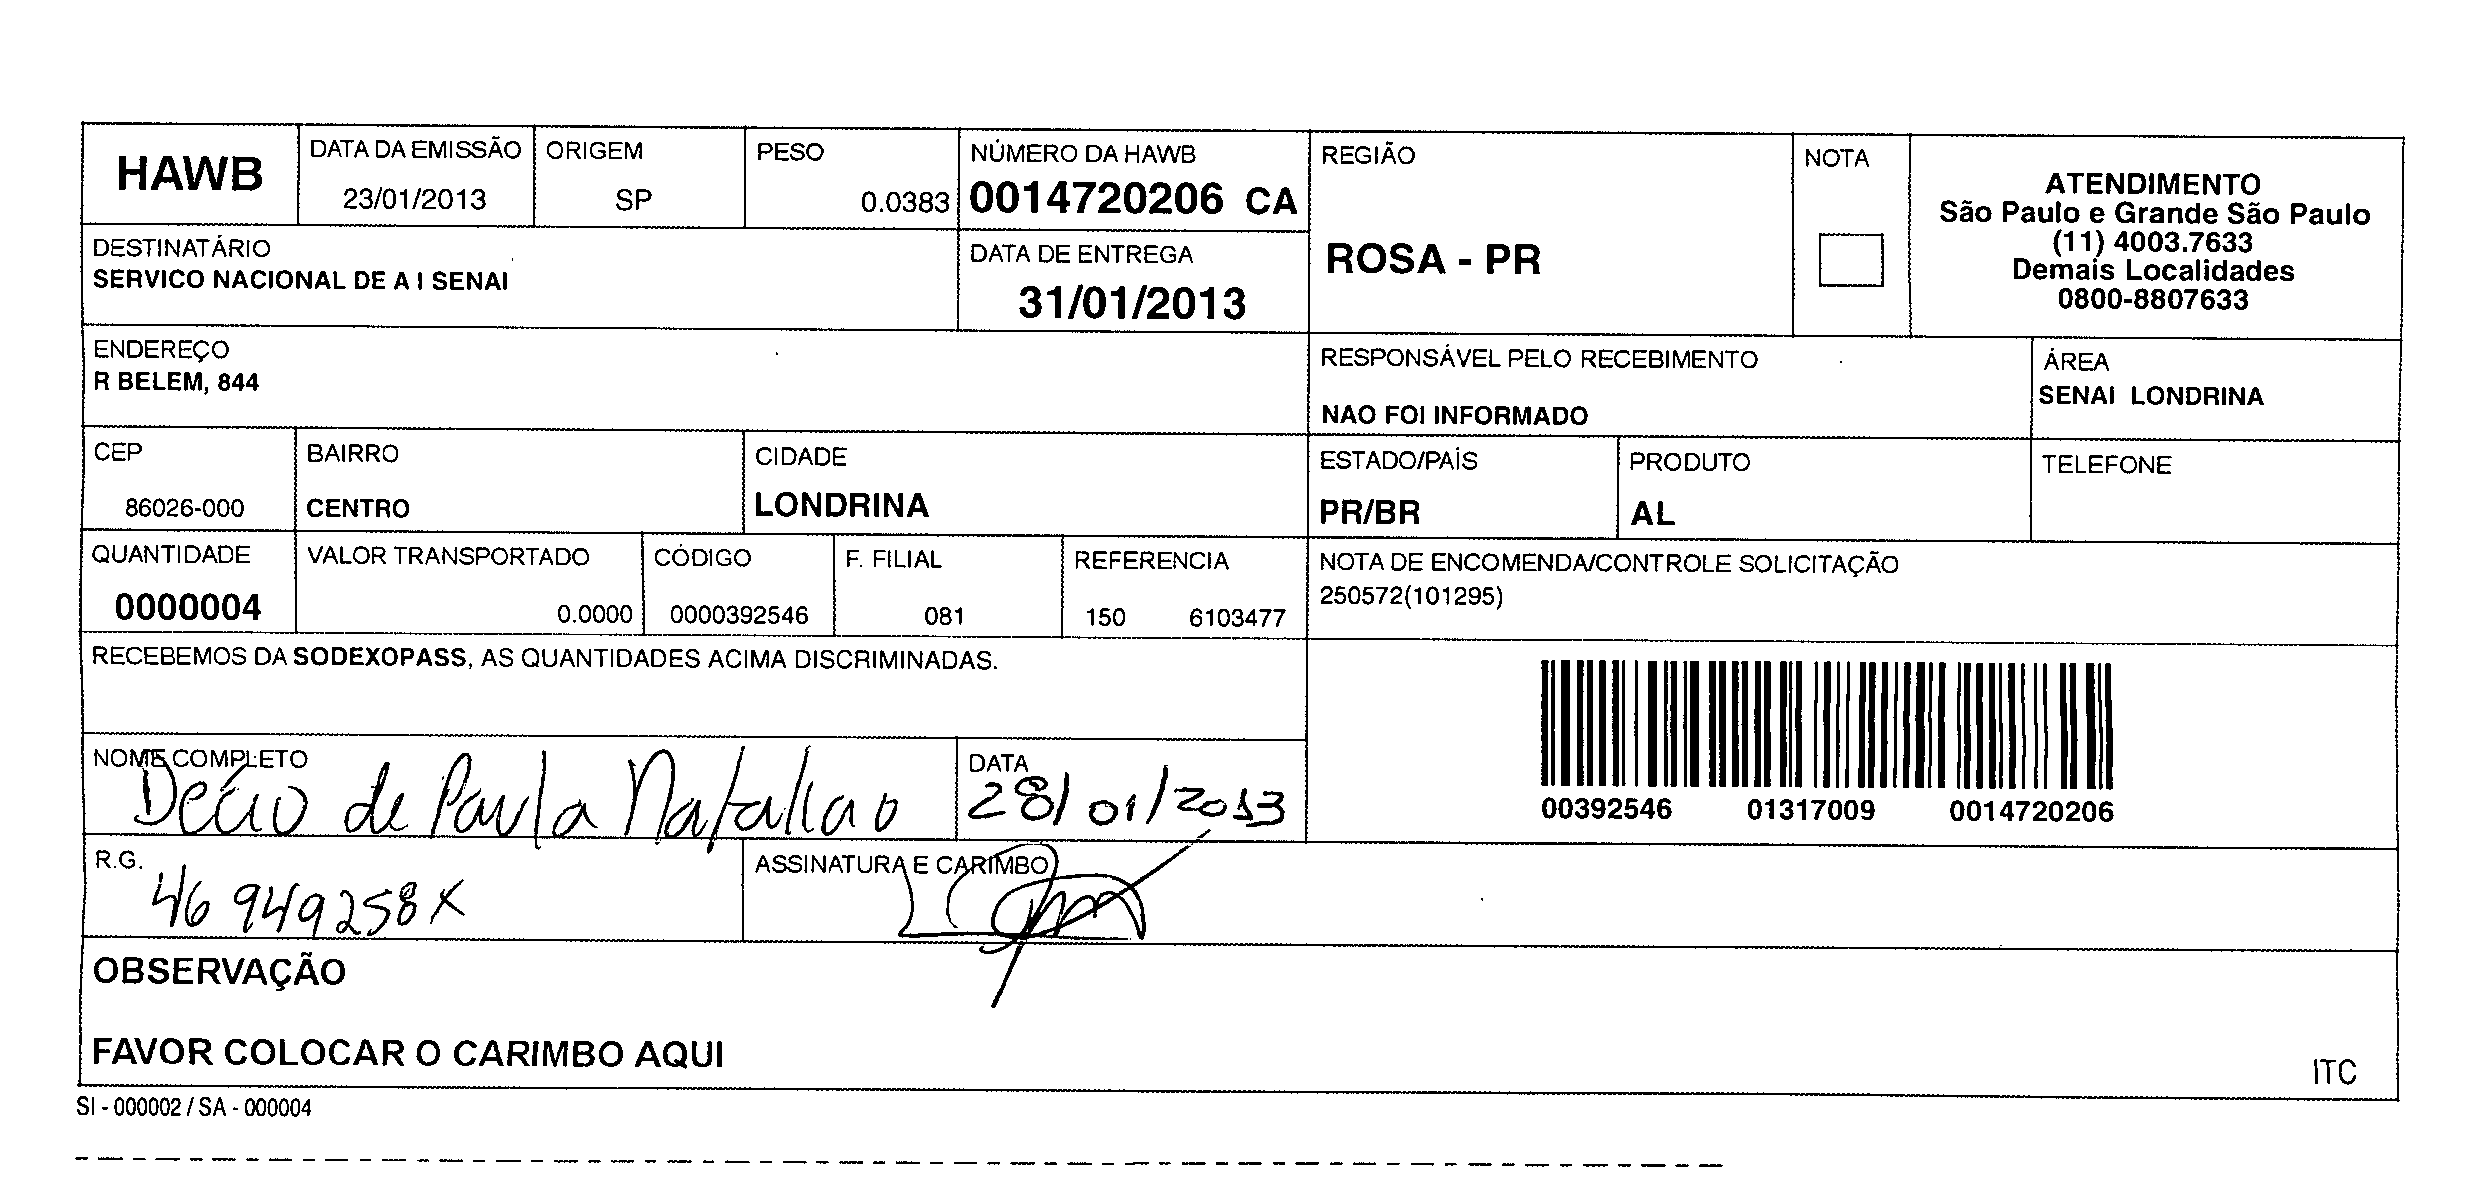 HAWB
DATA DA EMISSÃO
23/01/2013
ORIGEM
SP
PESO
0.0383
NÚMERO DA HAWB
0014720206 CA
REGIÃO
ROSA - PR
NOTA
ATENDIMENTO
São Paulo e Grande São Paulo
(11) 4003.7633
Demais Localidades
0800-8807633
DESTINATÁRIO
SERVICO NACIONAL DE A I SENAI
DATA DE ENTREGA
31/01/2013
ENDEREÇO
R BELEM, 844
RESPONSÁVEL PELO RECEBIMENTO
NAO FOI INFORMADO
ÁREA
SENAI LONDRINA
CEP
86026-000
BAIRRO
CENTRO
CIDADE
LONDRINA
ESTADO/PAÍS
PR/BR
PRODUTO
AL
TELEFONE
QUANTIDADE
0000004
VALOR TRANSPORTADO
0.0000
CÓDIGO
0000392546
F. FILIAL
081
REFERENCIA
150 6103477
NOTA DE ENCOMENDA/CONTROLE SOLICITAÇÃO
250572(101295)
RECEBEMOS DA SODEXOPASS, AS QUANTIDADES ACIMA DISCRIMINADAS.
00392546 01317009 0014720206
NOME COMPLETO
Decio de Paula
DATA
28/01/2013
R.G.
46 949258X
ASSINATURA E CARIMBO
OBSERVAÇÃO
FAVOR COLOCAR O CARIMBO AQUI
ITC
SI - 000002 / SA - 000004